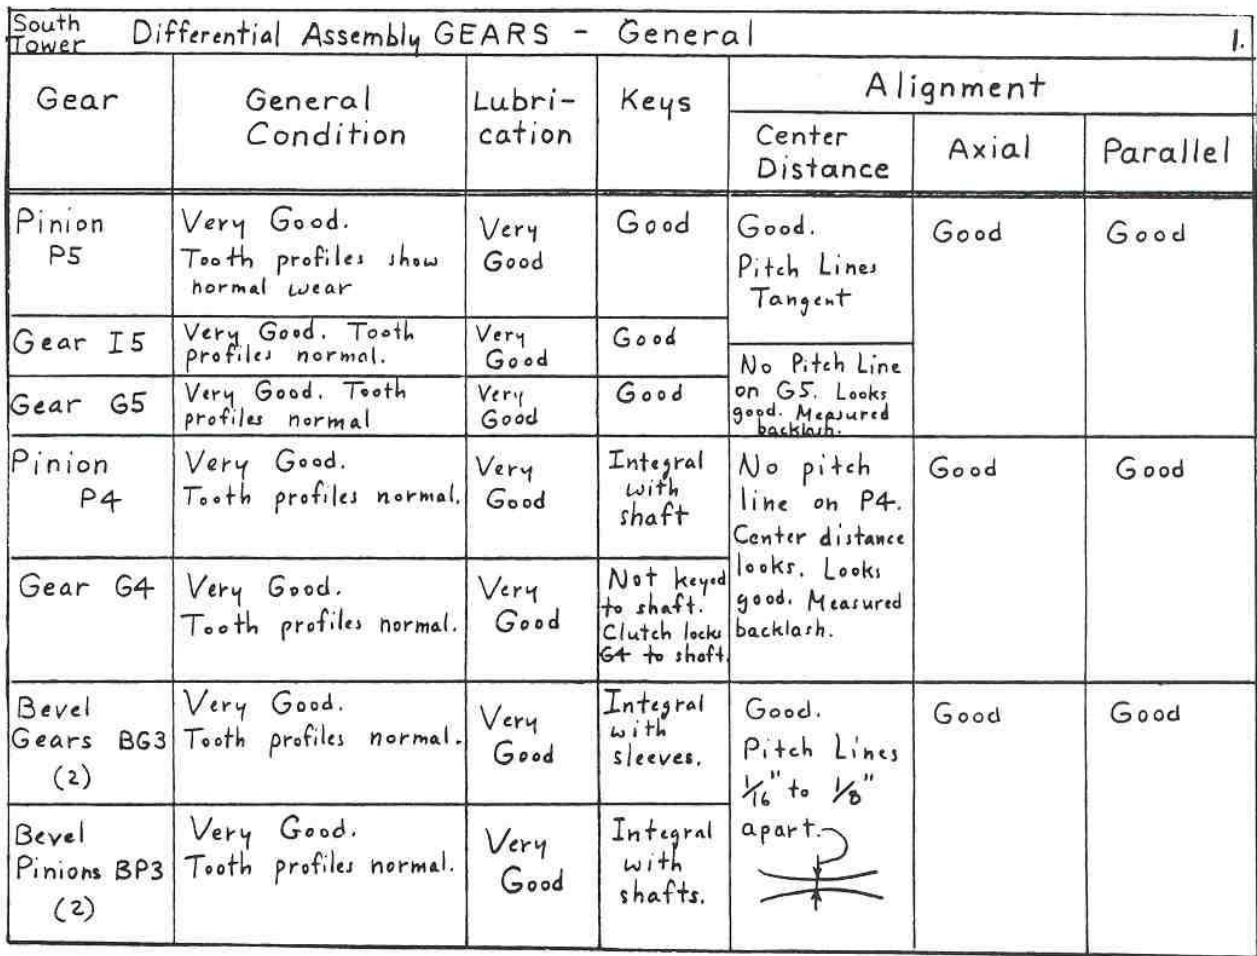 South
Tower
Differential Assembly GEARS - General
1.
Gear
General
Condition
Lubri-
cation
Keys
Alignment
Center
Distance
Axial
Parallel
Pinion
P5
Very Good.
Tooth profiles show
normal wear
Very
Good
Good
Good.
Pitch Lines
Tangent
Good
Good
Gear I5
Very Good. Tooth
profiles normal.
Very
Good
Good
No Pitch Line
on G5. Looks
good. Measured
backlash.
Gear G5
Very Good. Tooth
profiles normal
Very
Good
Good
Pinion
P4
Very Good.
Tooth profiles normal.
Very
Good
Integral
with
shaft
No pitch
line on P4.
Center distance
looks. Looks
good. Measured
backlash.
Good
Good
Gear G4
Very Good.
Tooth profiles normal.
Very
Good
Not keyed
to shaft.
Clutch locks
G4 to shaft.
Bevel
Gears BG3
(2)
Very Good.
Tooth profiles normal.
Very
Good
Integral
with
sleeves.
Good.
Pitch Lines
1/16" to 1/8"
apart.
Good
Good
Bevel
Pinions BP3
(2)
Very Good.
Tooth profiles normal.
Very
Good
Integral
with
shafts.